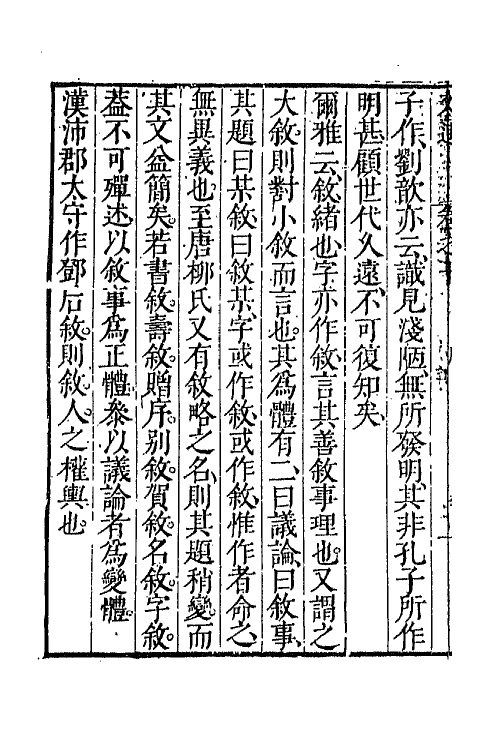 子作、劉歆亦云、識見淺陋、無所發明、其非孔子所作
明甚、顧世代久遠、不可復知矣、
爾雅云、敘緒也、字亦作敘、言其善敘事理也、又謂之
大敘、則對小敘而言也、其爲體有二、曰議論、曰敘事、
其題曰某敘、曰敘某、字或作敘、或作敘、惟作者命之、
無異義也、至唐柳氏又有敘略之名、則其題稍變、而
其文益簡矣、若書敘。壽敘。贈序。別敘。賀敘。名敘。字敘。
葢不可殫述、以敘事爲正體、叅以議論者爲變體。
漢沛郡太守作鄧后敘。則敘人之權輿也